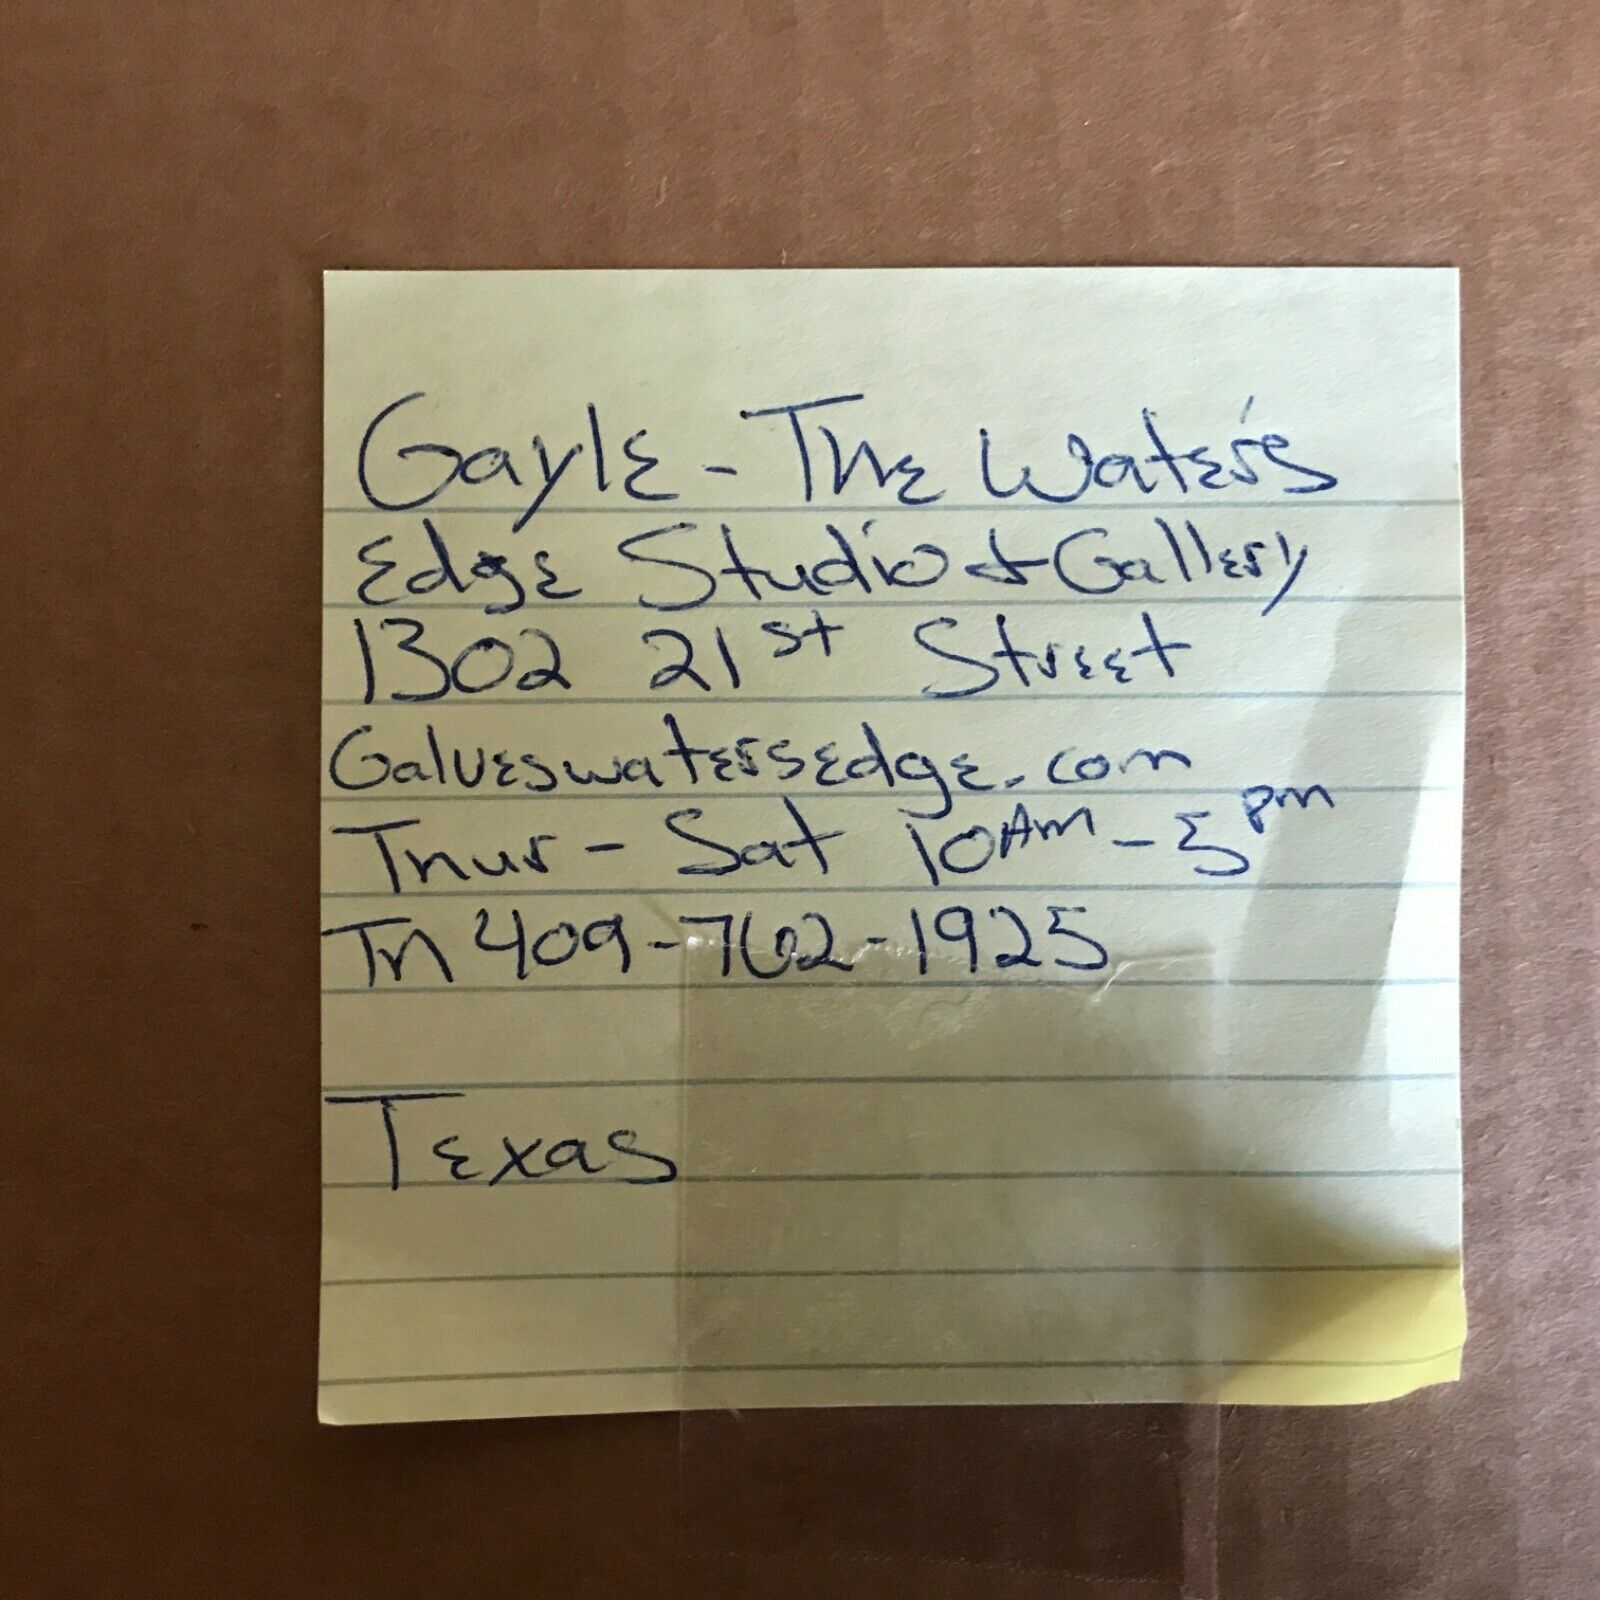 Gayle - The Water's
Edge Studio & Gallery
1302 21st Street
Galveswatersedge.com
Thur - Sat 10AM - 5pm
Tn 409-762-1925
Texas